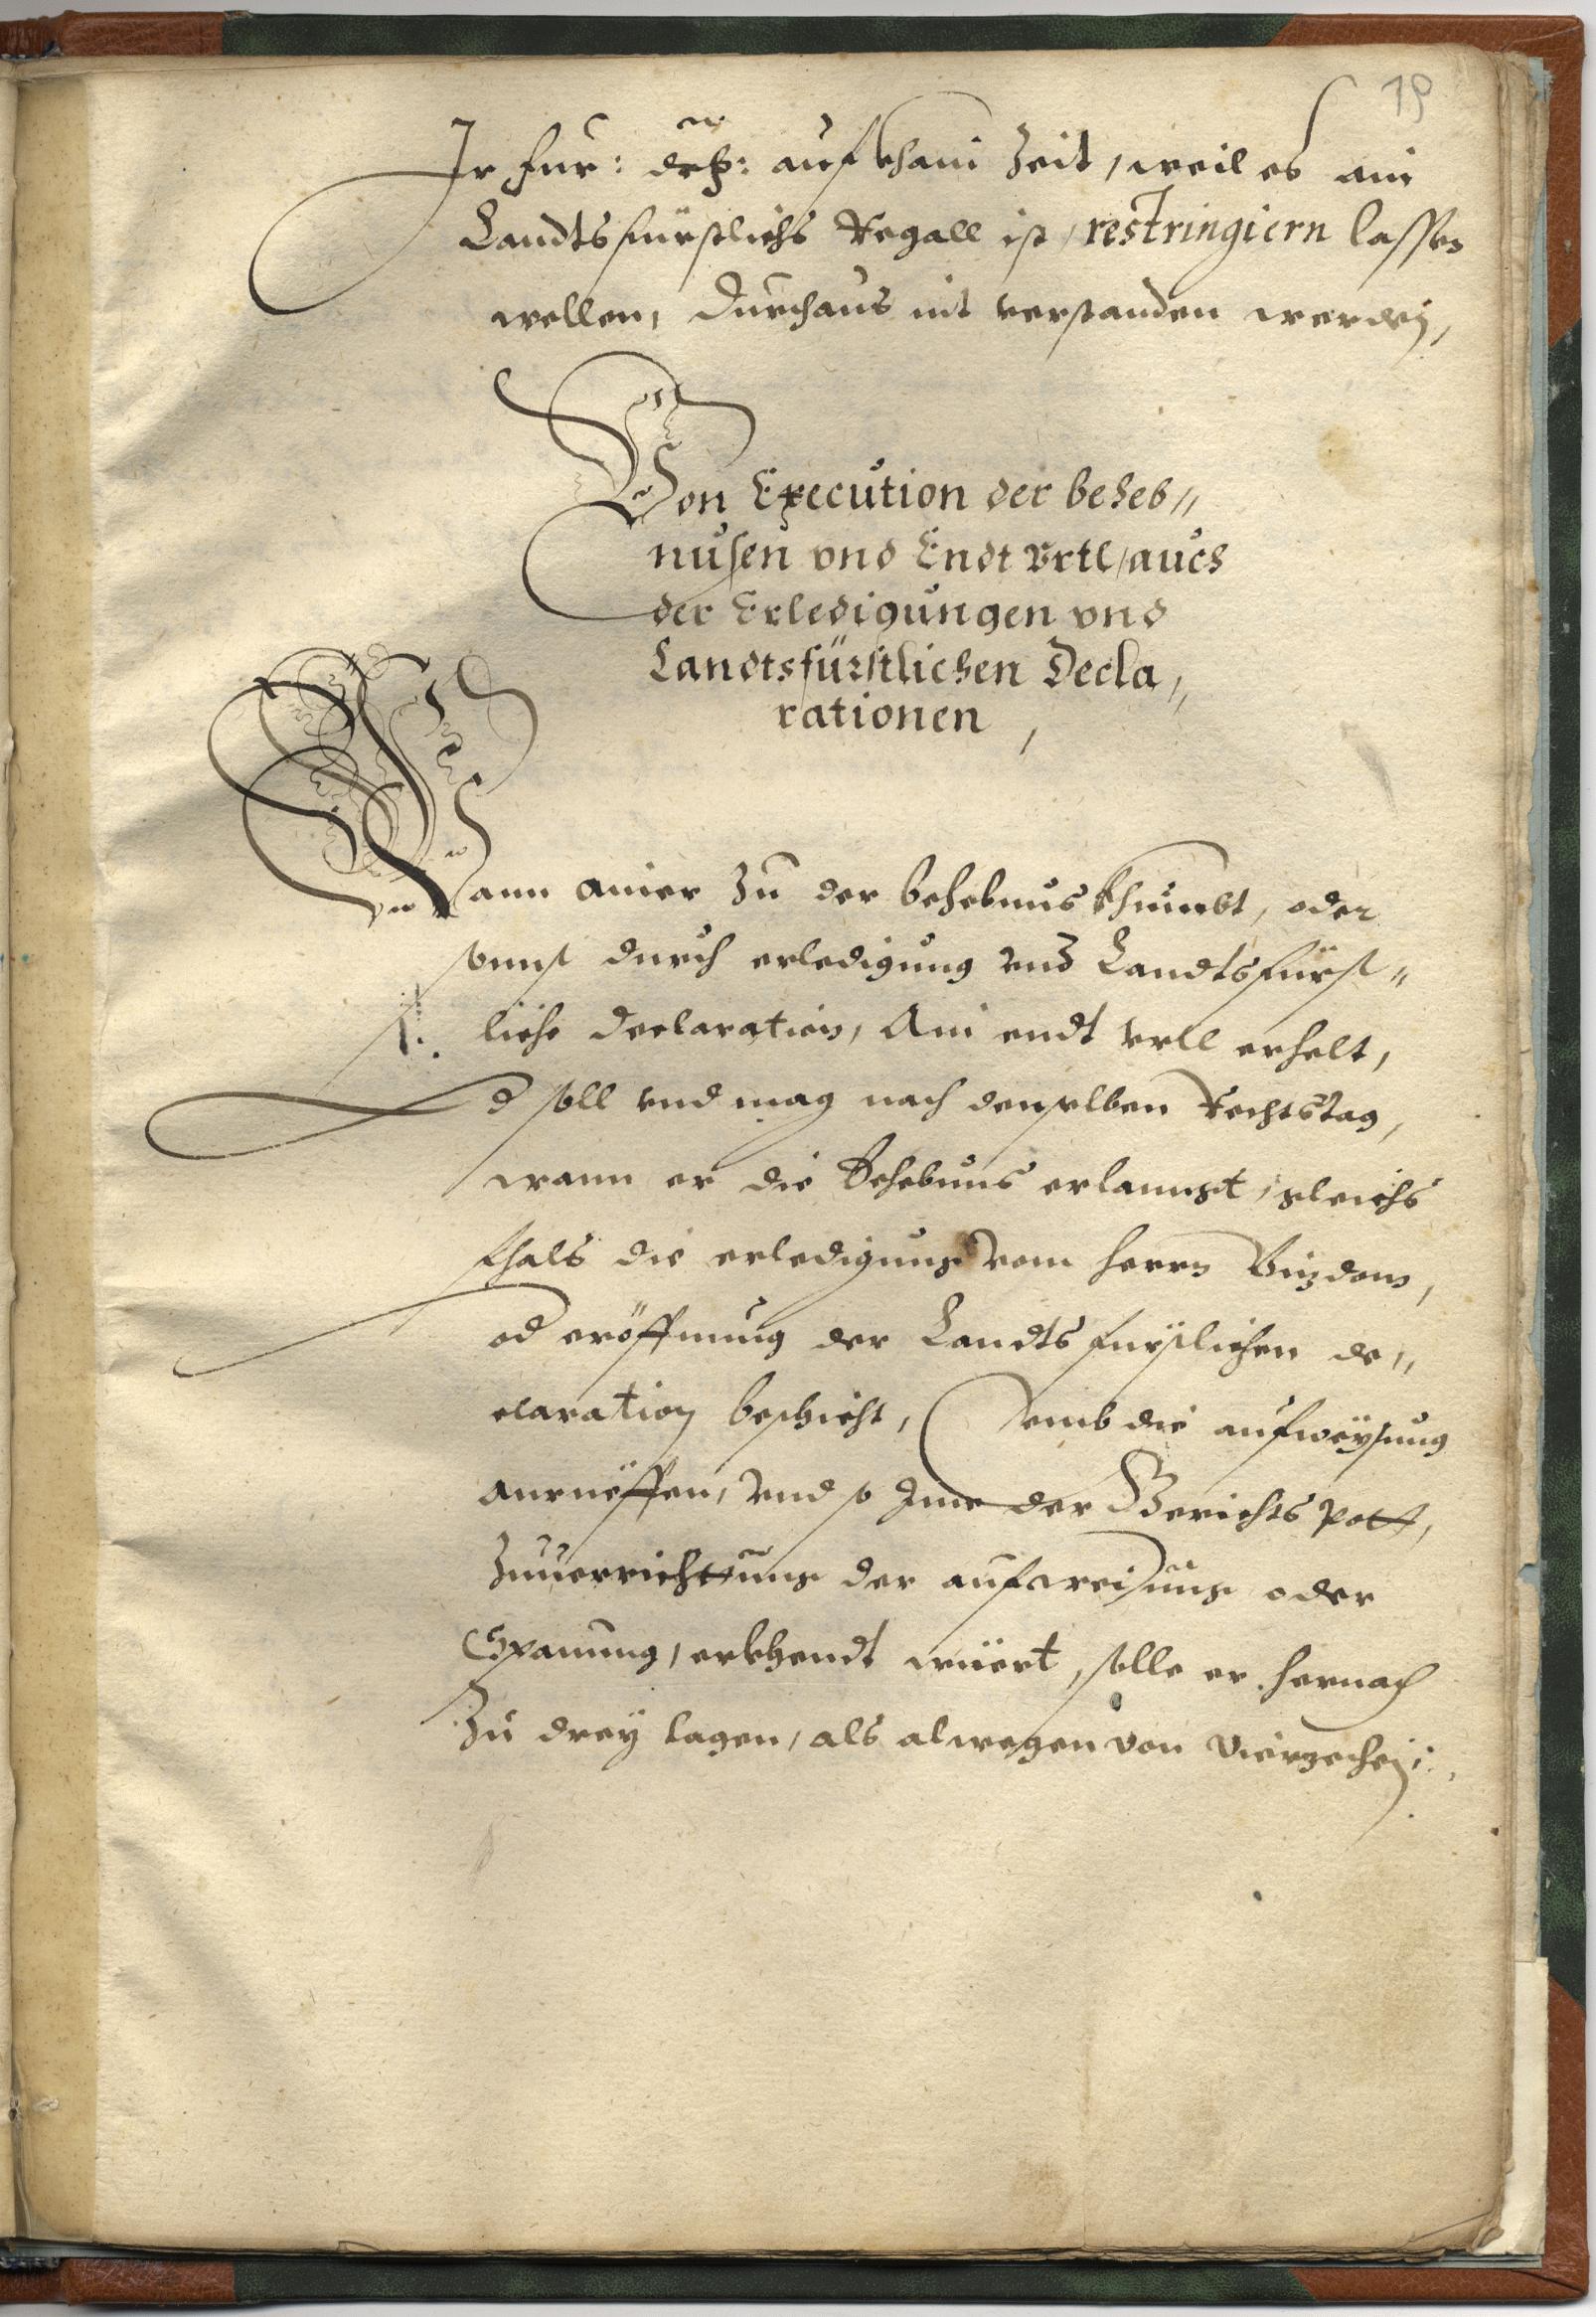 19
Ir Fur: drh: auf khain Zeit, weil es ain
Landtsfürstlichs Regall ist, restringiern lassen
wellen, durchaus nit verstanden werden,
Von Execution der beheb„
nusen vnd Endt Vrtl, auch
der Erledigungen vnd
Landtsfürstlichen Decla„
rationen,
Wann ainer Zu der behebnus khumbt, oder
sunst durch erledigung vnd Landtsfürst„
liche declaration, Ain endt vrll erhelt,
d soll vnd mag nach denselben Rechtstag,
wann er die Behebnus erlanngt, gleichs
fhals die erledigung vom herrn Vizdom,
od eröffnung der Landtsfurstlichen de„
claration beschicht, vmb die aufweÿsung
anrueffen, vnd so Ime der Gerichts pott,
Zuuerrichtung der aufweisung oder
Spanung, erkhendt wüert, solle er hernach
Zu dreÿ tagen, als alwegen von vierzechen